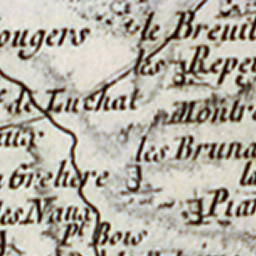 ougers
le Breuil
les Repe
de Luchat
Montr
aux
les Bruna
Grehere
la
les Naux
Plan
pt Bois